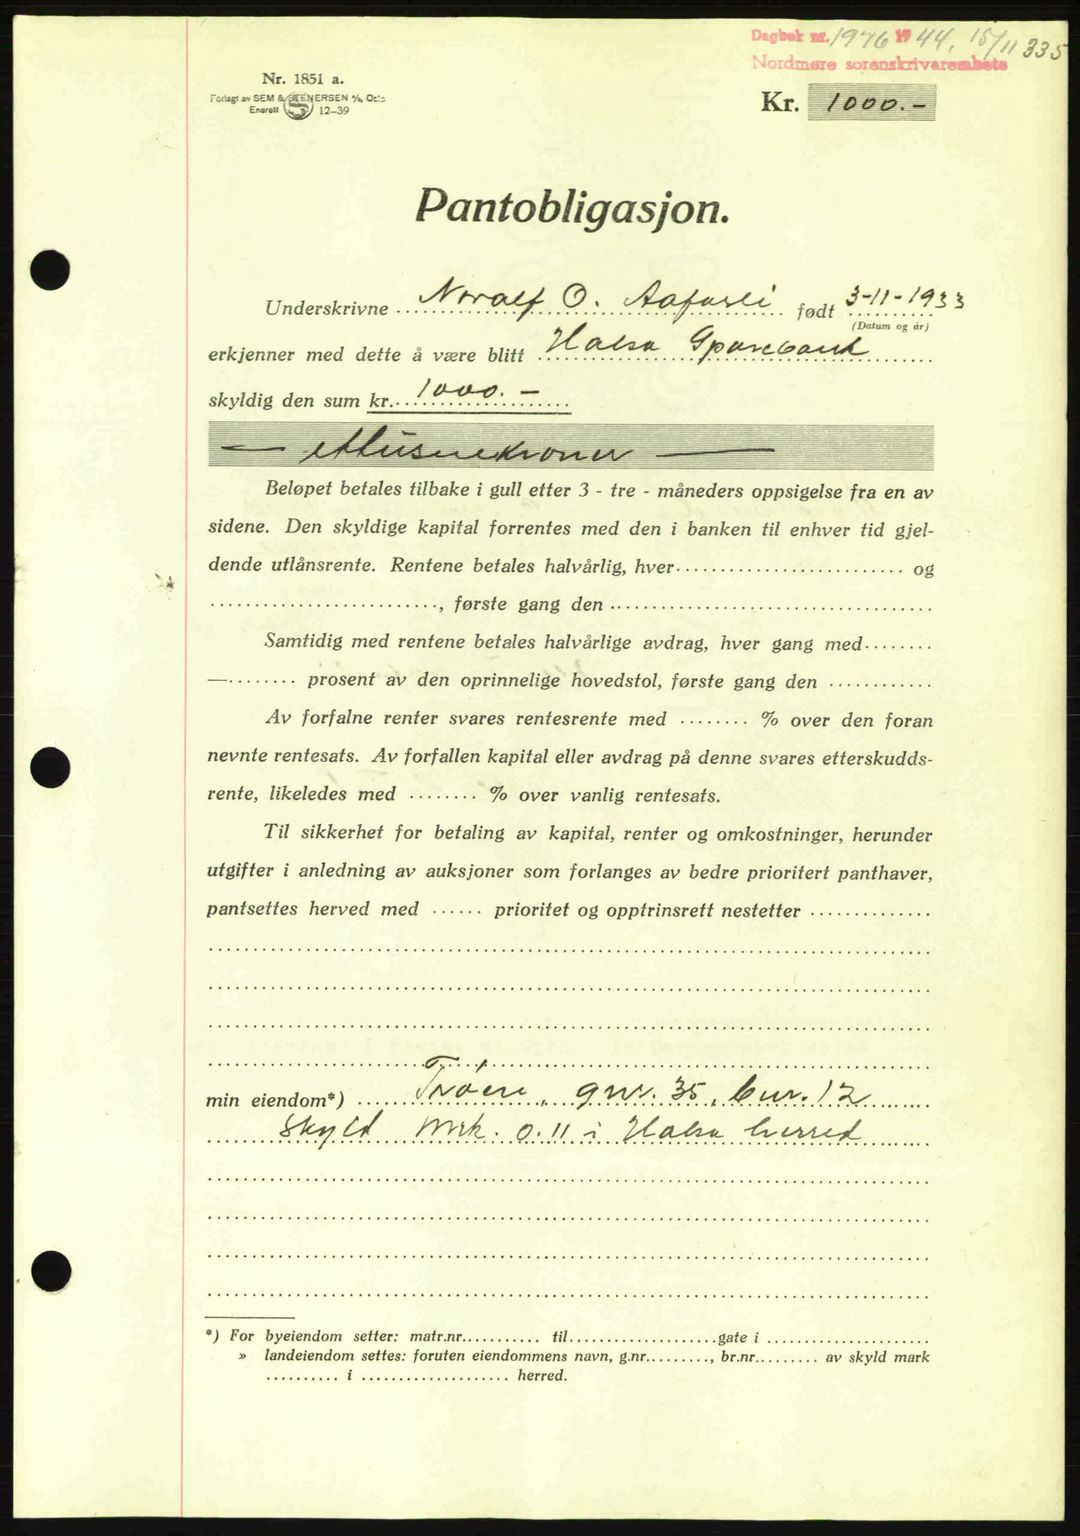 Dagbok nr. 1976 1944, 15/11 335
Nordmøre sorenskrivarembete
Nr. 1851 a.
Forlagt av SEM & STENERSEN A/S, Oslo
Enerett S 12–39
Kr. 1000.-
Pantobligasjon.
Underskrivne Noralf O. født 3-11-1933
(Datum og år)
erkjenner med dette å være blitt Halsa Sparebank
skyldig den sum kr. 1000.-
— ettusenkroner —
Beløpet betales tilbake i gull etter 3 - tre - måneders oppsigelse fra en av
sidene. Den skyldige kapital forrentes med den i banken til enhver tid gjel-
dende utlånsrente. Rentene betales halvårlig, hver .......... og
.........., første gang den ..........
Samtidig med rentene betales halvårlige avdrag, hver gang med ........
—........ prosent av den oprinnelige hovedstol, første gang den ............
Av forfalne renter svares rentesrente med ........ % over den foran
nevnte rentesats. Av forfallen kapital eller avdrag på denne svares etterskudds-
rente, likeledes med ........ % over vanlig rentesats.
Til sikkerhet for betaling av kapital, renter og omkostninger, herunder
utgifter i anledning av auksjoner som forlanges av bedre prioritert panthaver,
pantsettes herved med ...... prioritet og opptrinsrett nestetter ..............
min eiendom*) gnr. 35, bnr. 12
skyld mrk. 0.11 i Halsa herred
*) For byeiendom setter: matr.nr........... til....................gate i ......................
» landeiendom settes: foruten eiendommens navn, g.nr........., br.nr......... av skyld mark
.......... i .................... herred.